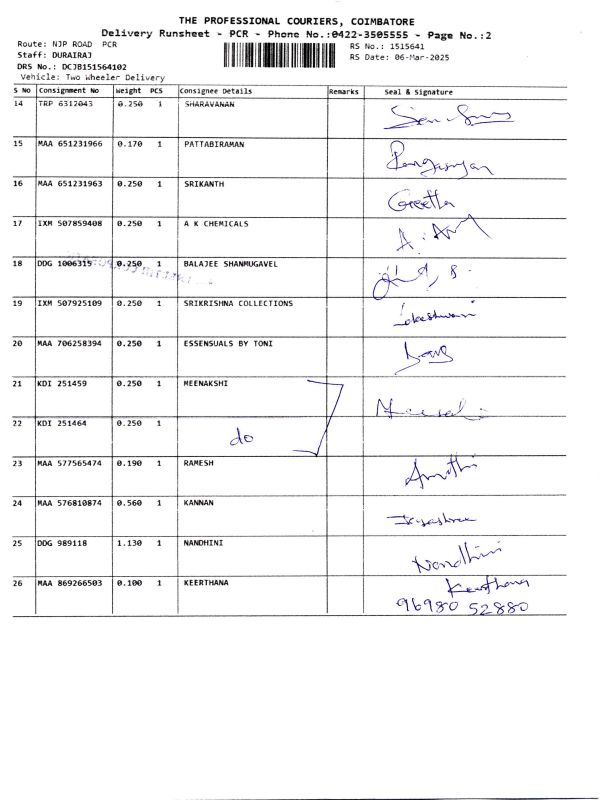 THE PROFESSIONAL COURIERS, COIMBATORE
Delivery Runsheet - PCR - Phone No.:0422-3505555 - Page No.:2
Route: NJP ROAD PCR
RS No.: 1515641
Staff: DURAIRAJ
RS Date: 06-Mar-2025
DRS No.: DCJB151564102
Vehicle: Two Wheeler Delivery
S No Consignment No Weight PCS Consignee Details Remarks Seal & Signature
14 TRP 6312043 0.250 1 SHARAVANAN
15 MAA 651231966 0.170 1 PATTABIRAMAN
16 MAA 651231963 0.250 1 SRIKANTH Geetha
17 IXM 507859408 0.250 1 A K CHEMICALS
18 DDG 1006315 0.250 1 BALAJEE SHANMUGAVEL
19 IXM 507925109 0.250 1 SRIKRISHNA COLLECTIONS
20 MAA 706258394 0.250 1 ESSENSUALS BY TONI
21 KDI 251459 0.250 1 MEENAKSHI
22 KDI 251464 0.250 1 do
23 MAA 577565474 0.190 1 RAMESH
24 MAA 576810874 0.560 1 KANNAN
25 DDG 989118 1.130 1 NANDHINI Nandhini
26 MAA 869266503 0.100 1 KEERTHANA Keerthana
96980 52880